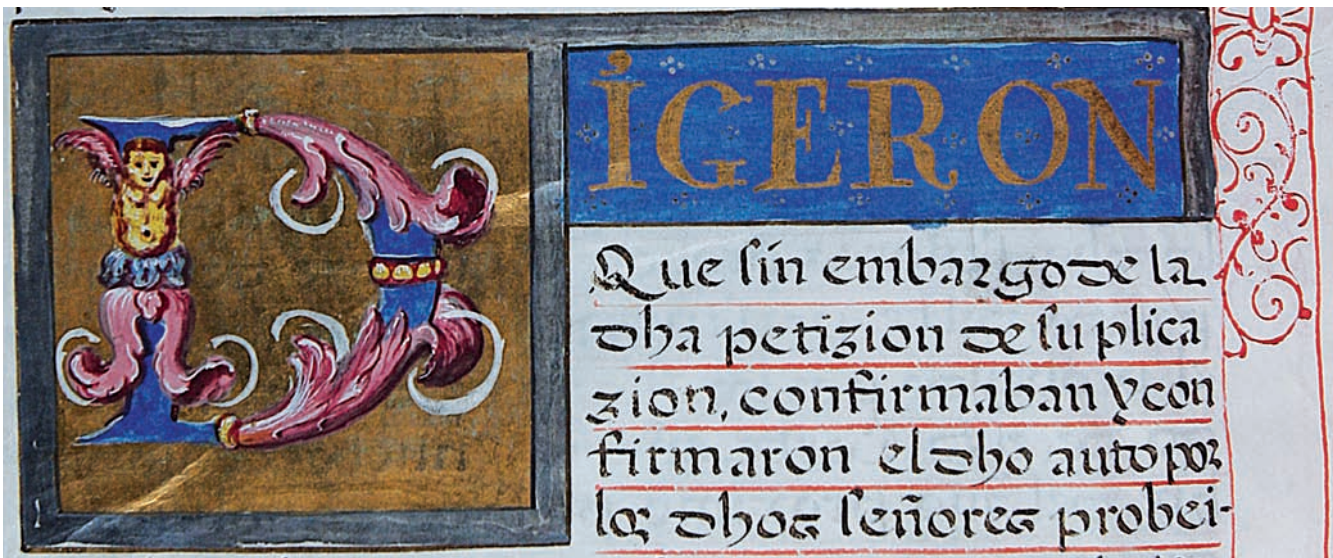 DIGERON
Que sin embargo de la
dha petizion de suplica
zion, confirmaban y con
firmaron el dho auto por
los dhos señores probei-